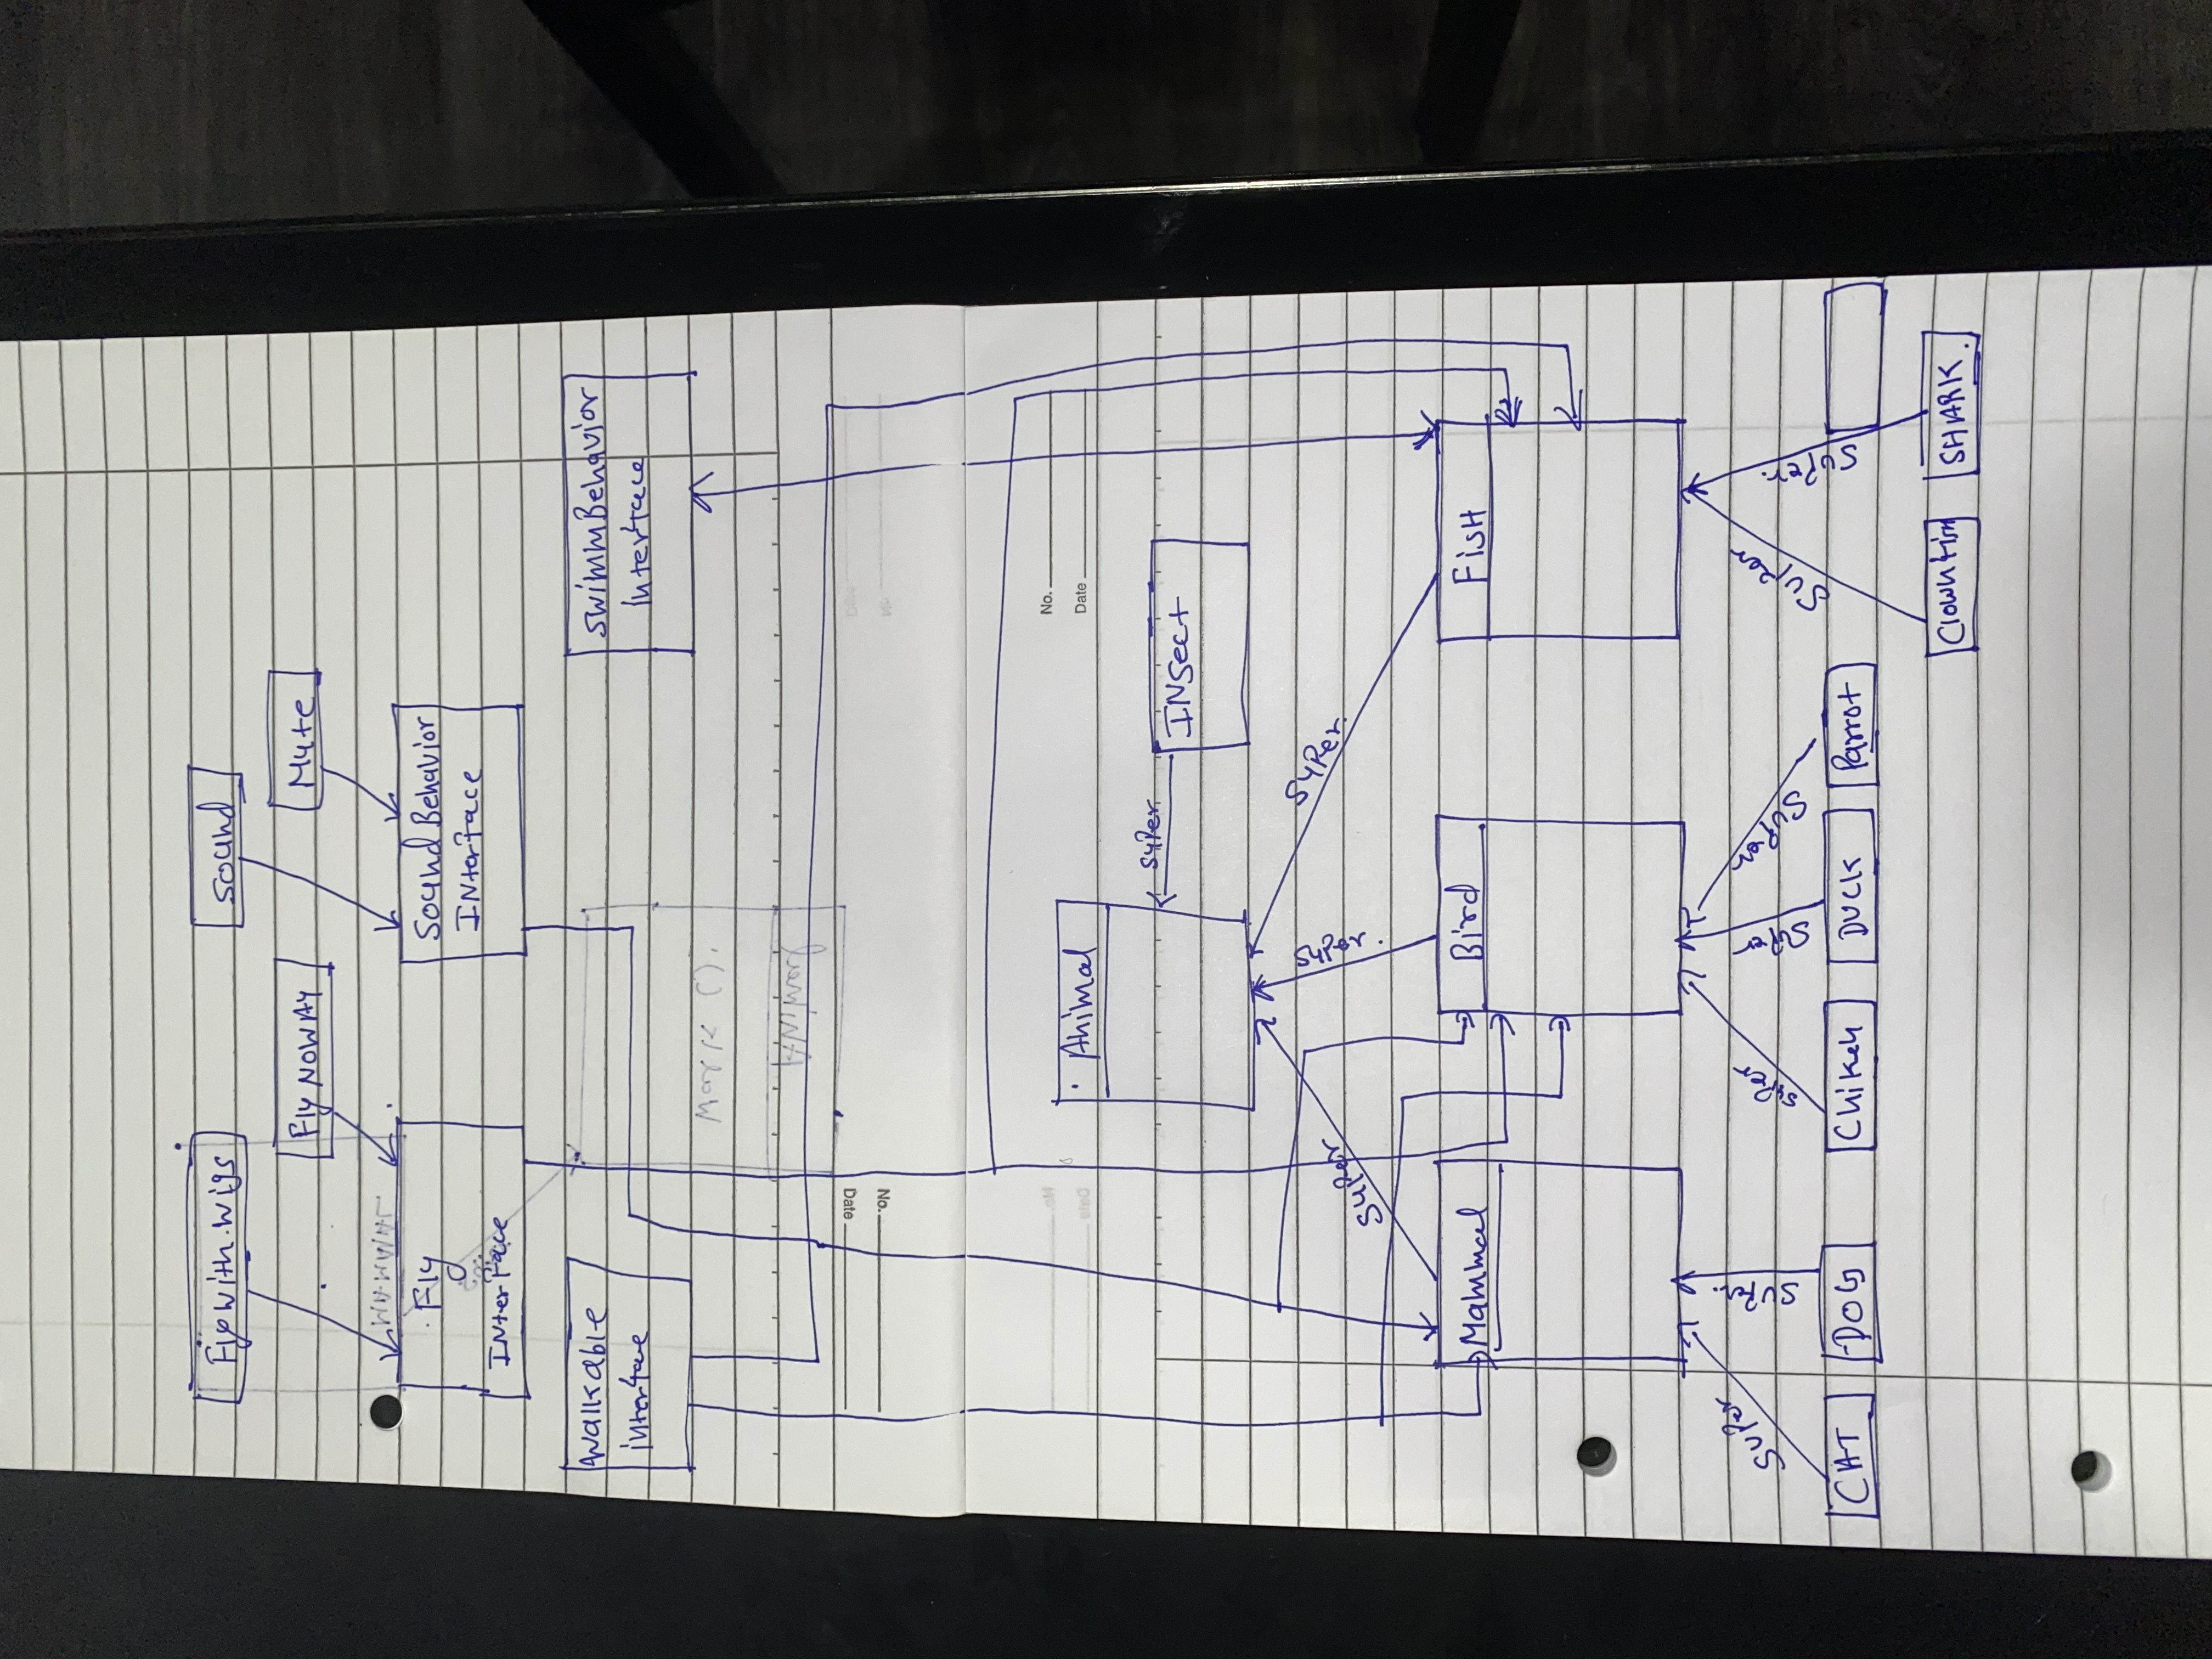 Fly with.wigs
Sound
Fly NOWAY
Mute
MAMMAL
Fly
INterface
Sound Behavior
INterface
Walkable
interface
SwimmBehavior
Interface
Mark ().
Animal
Date
No.
No.
Date
No.
Date
Animal
super
INSect
super
super.
super.
Mammal
Bird
FisH
super
super.
super
super
super
CAT
DOG
Chiken
DUCK
Parrot
super
super.
Clownfish
SHARK.